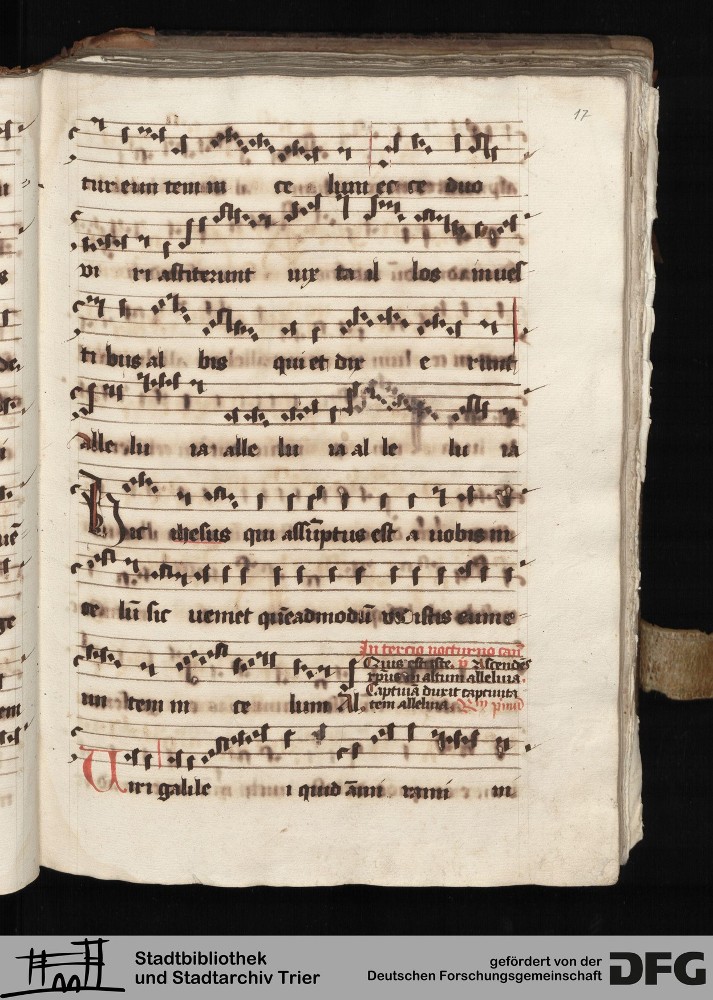 17
tur eun tem in ce lum ec ce duo
vi ri astiterunt iux ta il los in ues
ti bus al bis qui et dix e runt
alle lu ia alle lu ia al le lu ia
Hic ihesus qui assūptus est a uobis in
ce lū sic ueniet quēadmodū vidistis eum e
un tem in ce lum Al
In tercio nocturno
Quis est iste. Ascendēs
xpus in altum alleluia.
Captiuā duxit captiuita
tem alleluia.
Uiri galile i quid āmi rami ni
Stadtbibliothek
und Stadtarchiv Trier
gefördert von der
Deutschen Forschungsgemeinschaft
DFG